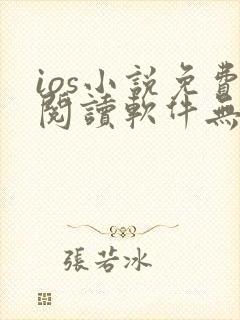 ios小説免費
閱讀軟件無
張若冰